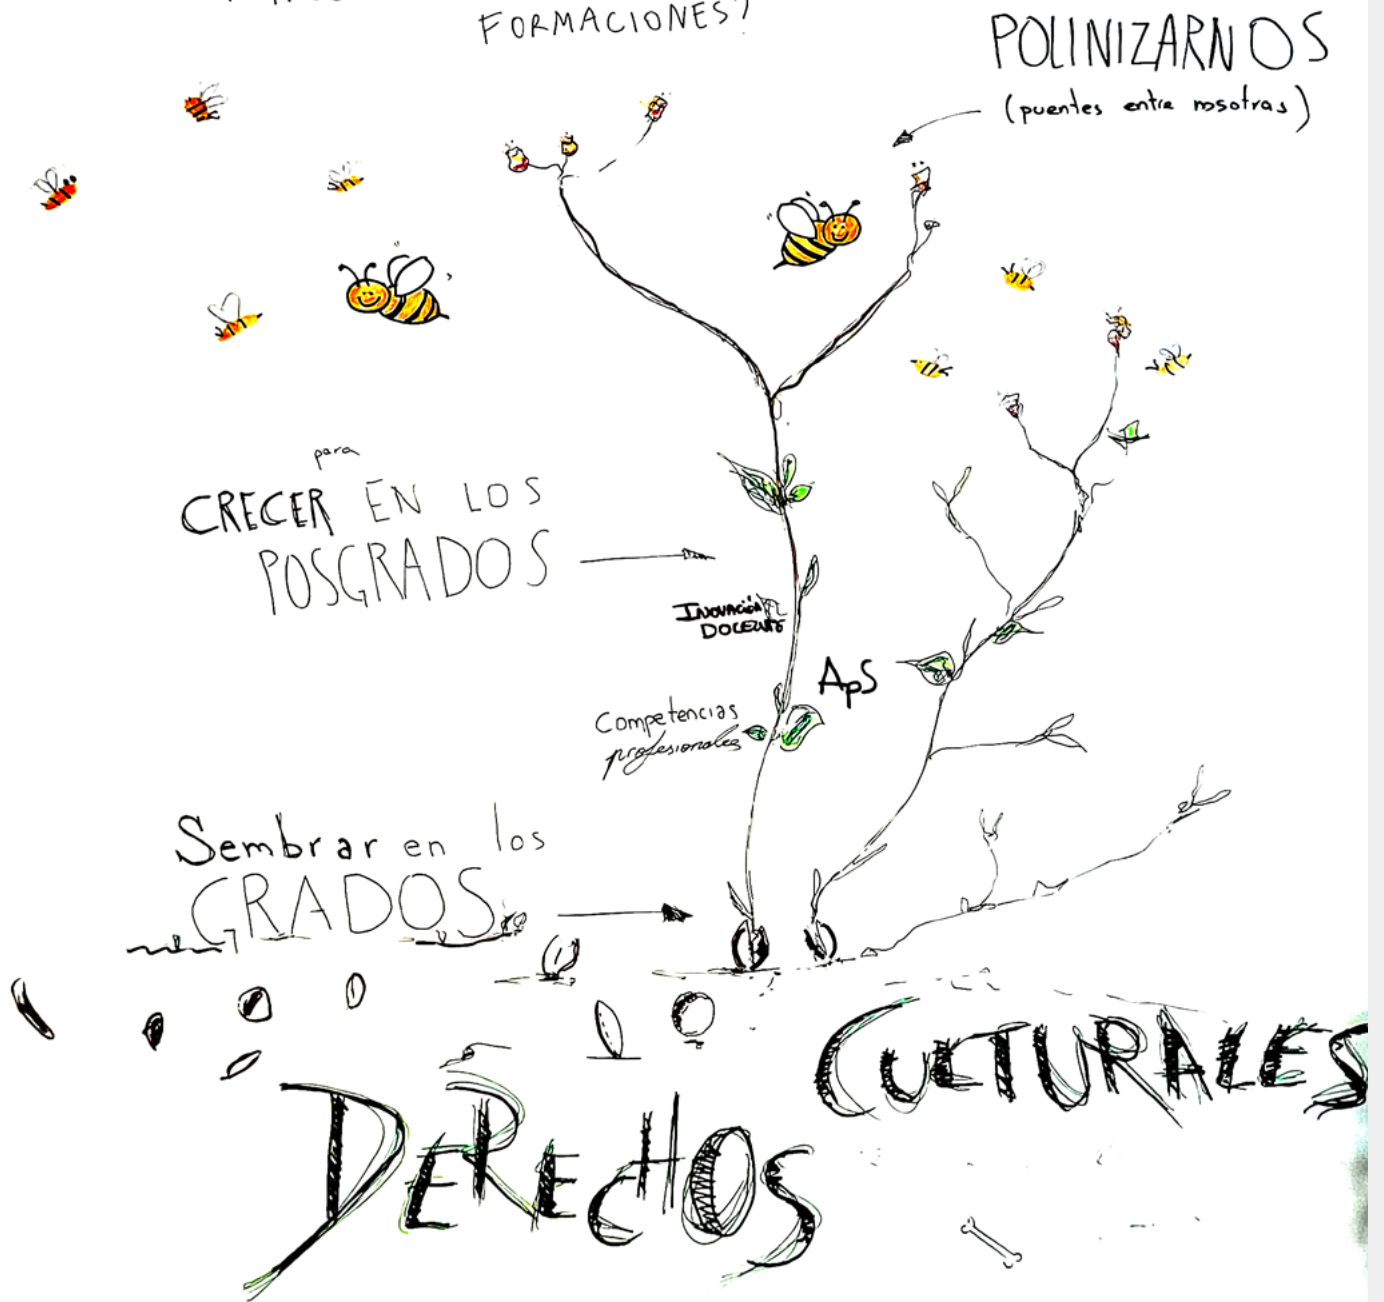 FORMACIONES?
POLINIZARNOS
(puentes entre nosotras)
para
CRECER EN LOS
POSGRADOS
INOVACIÓN
DOCENTE
ApS
Competencias
profesionales
Sembrar en los
GRADOS
CULTURALES
DERECHOS